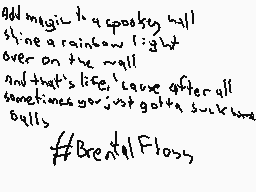 Add magic to a spookey wall
shine a rainbow light
over on the wall
And that's life, 'cause after all
sometimes you just gotta suck some
balls
#BrentalFloss